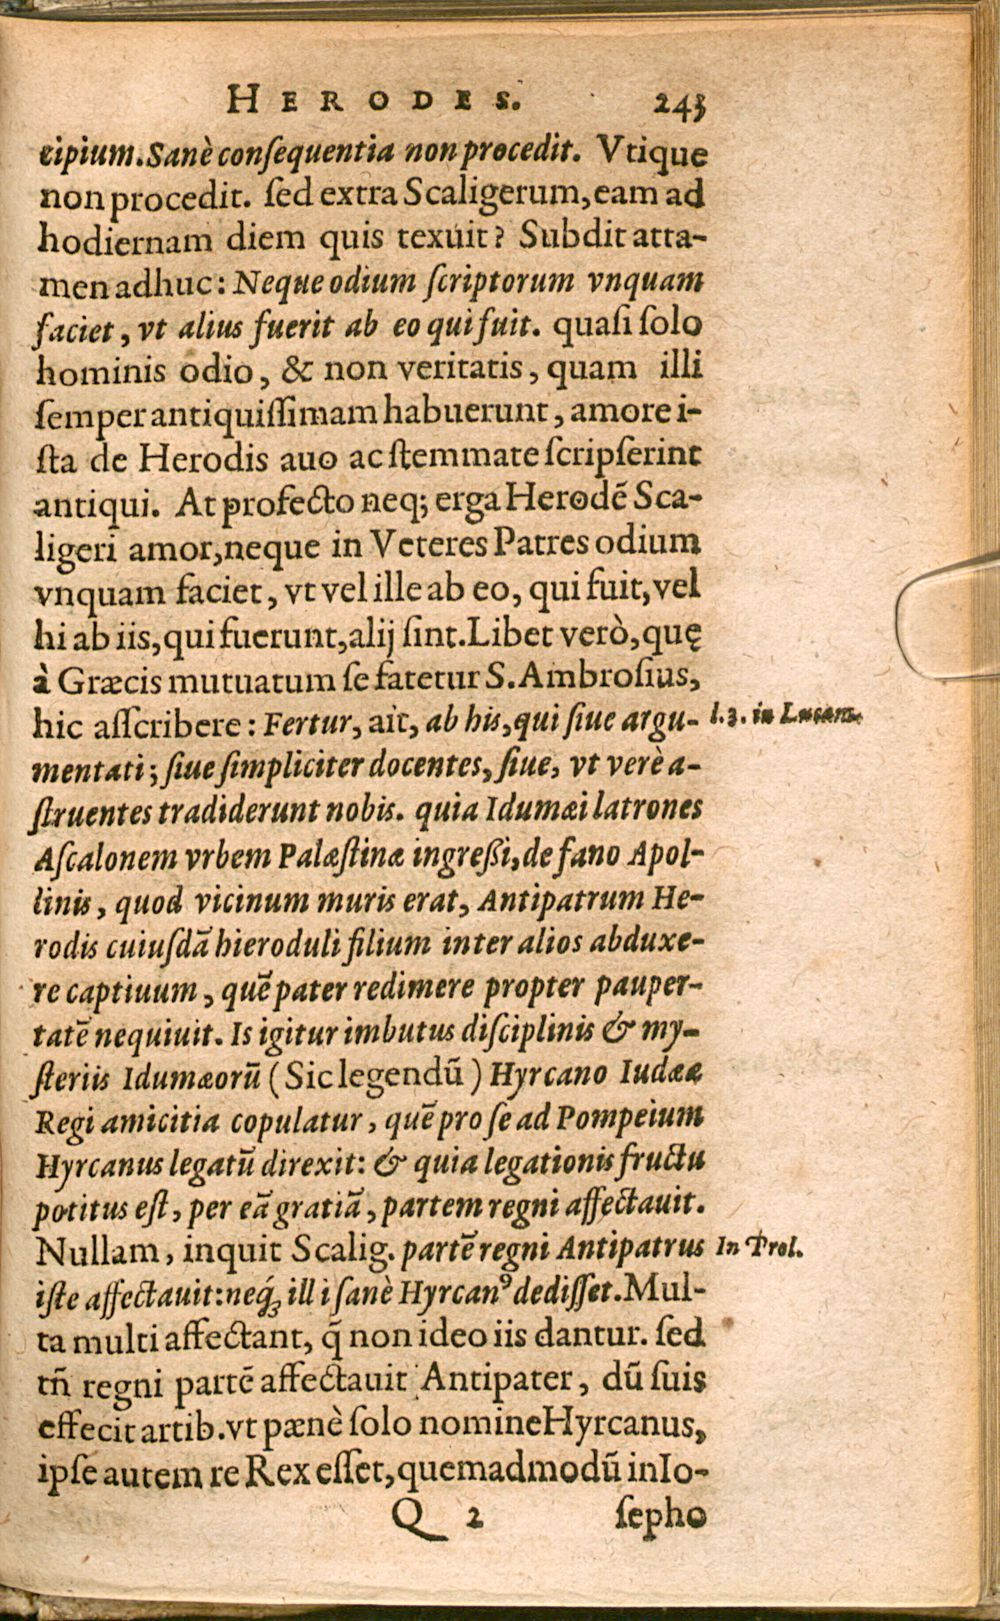 HERODES. 243
cipium. Sanè conſequentia non procedit. Vtique
non procedit. ſed extra Scaligerum, eam ad
hodiernam diem quis texuit? Subdit atta-
men adhuc: Neque odium ſcriptorum vnquam
faciet, vt alius fuerit ab eo qui fuit. quaſi ſolo
hominis odio, & non veritatis, quam illi
ſemper antiquiſſimam habuerunt, amore i-
ſta de Herodis auo ac ſtemmate ſcripſerint
antiqui. At profecto neq; erga Herodẽ Sca-
ligeri amor, neque in Veteres Patres odium
vnquam faciet, vt vel ille ab eo, qui fuit, vel
hi ab iis, qui fuerunt, alij ſint. Libet verò, quę
à Græcis mutuatum ſe fatetur S. Ambroſius,
hic aſſcribere: Fertur, ait, ab his, qui ſiue argu- l.3. in Lucam.
mentati; ſiue ſimpliciter docentes, ſiue, vt verè a-
ſtruentes tradiderunt nobis. quia Idumæi latrones
Aſcalonem vrbem Palæſtinæ ingreßi, de fano Apol-
linis, quod vicinum muris erat, Antipatrum He-
rodis cuiuſdã hieroduli filium inter alios abduxe-
re captiuum, quẽ pater redimere propter pauper-
tatẽ nequiuit. Is igitur imbutus diſciplinis & my-
ſteriis Idumæorũ (Sic legendũ) Hyrcano Iudææ
Regi amicitia copulatur, quẽ pro ſe ad Pompeium
Hyrcanus legatũ direxit: & quia legationis fructu
potitus eſt, per eã gratiã, partem regni affectauit.
Nullam, inquit Scalig. partẽ regni Antipatrus In Prol.
iſte affectauit: neq́ꝫ illi ſanè Hyrcanꝰ dediſſet. Mul-
ta multi affectant, q̃ non ideo iis dantur. ſed
tñ regni partẽ affectauit Antipater, dũ ſuis
effecit artib. vt pænè ſolo nomine Hyrcanus,
ipſe autem re Rex eſſet, quemadmodũ in Io-
Q 2 ſepho